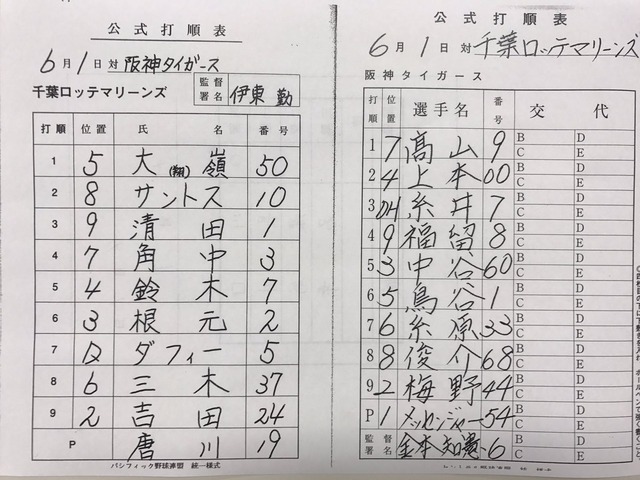 公式打順表
6月1日対 阪神タイガース
千葉ロッテマリーンズ 監督署名 伊東 勤
打順 位置 氏名 番号
1 5 大(翔)嶺 50
2 8 サントス 10
3 9 清田 1
4 7 角中 3
5 4 鈴木 7
6 3 根元 2
7 D ダフィー 5
8 6 三木 37
9 2 吉田 24
P 唐川 19
パシフィック野球連盟 統一様式
公式打順表
6月1日対 千葉ロッテマリーンズ
阪神タイガース
打順 位置 選手名 番号 交代
1 7 高山 9 B D C E
2 4 上本 00 B D C E
3 DH 糸井 7 B D C E
4 9 福留 8 B D C E
5 3 中谷 60 B D C E
6 5 鳥谷 1 B D C E
7 6 糸原 33 B D C E
8 8 俊介 68 B D C E
9 2 梅野 44 B D C E
P 1 メッセンジャー 54 B D C E
監督署名 金本 知憲 6 B D C E